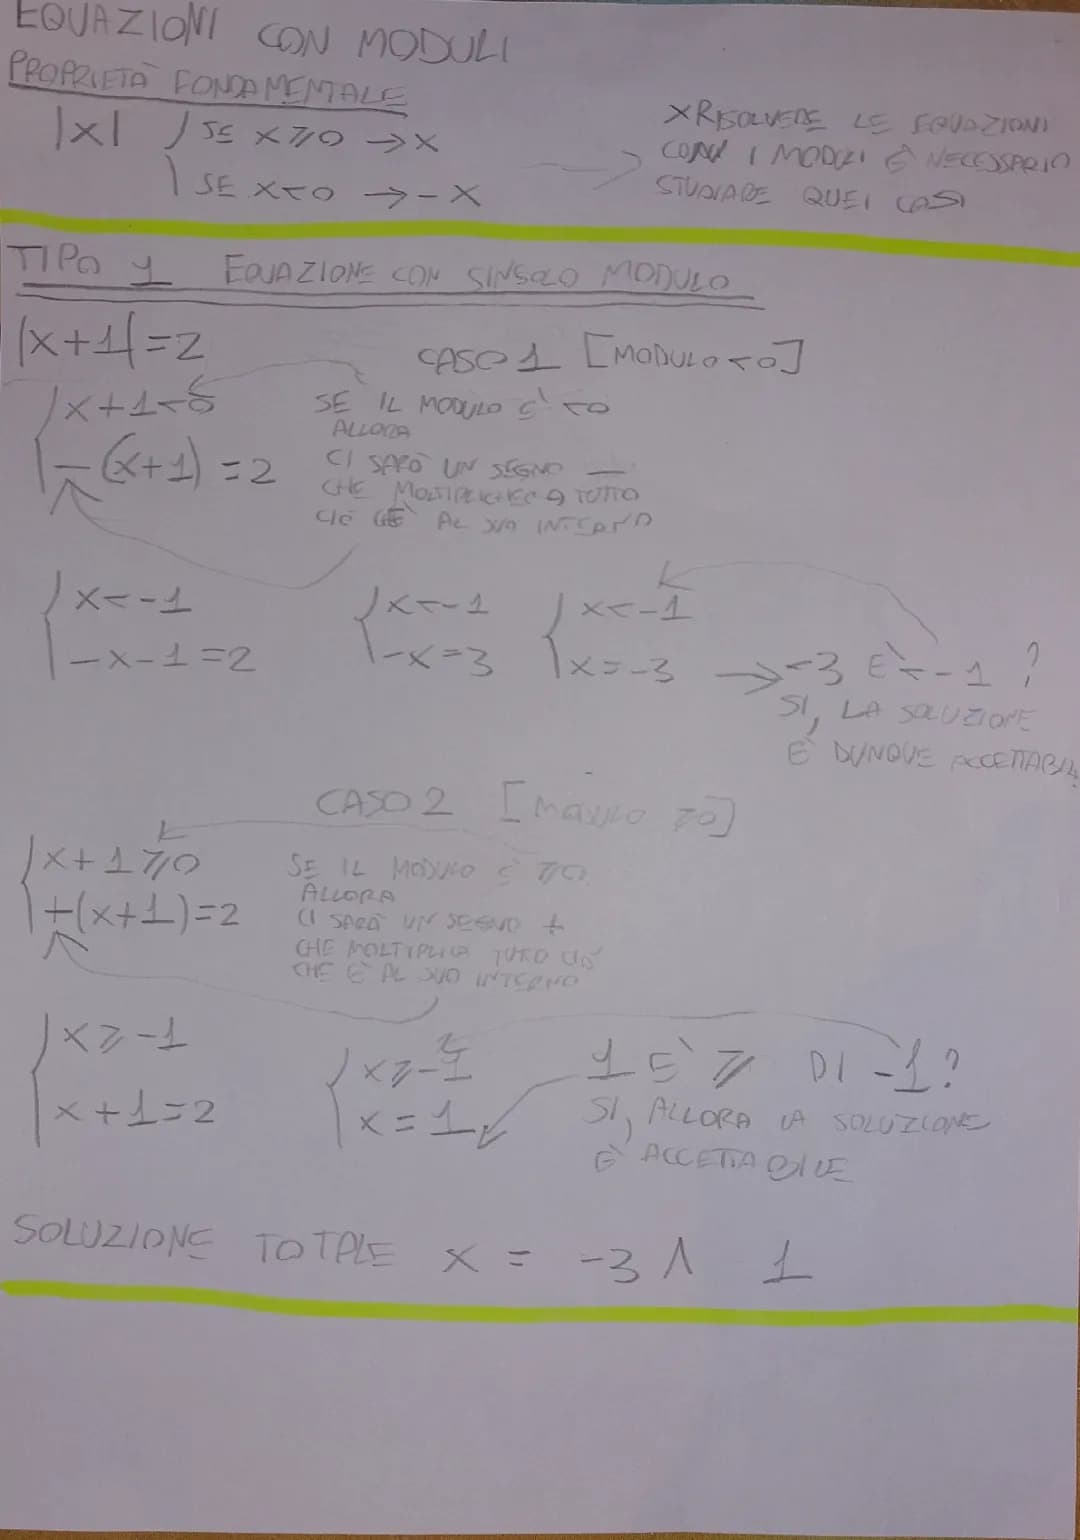 EQUAZIONI CON MODULI
PROPRIETÀ FONDAMENTALE
|x| { SE x ⩾ 0 → x
SE x < 0 → - x
x RISOLVERE LE EQUAZIONI
CON I MODULI È NECESSARIO
STUDIARE QUEI CASI
TIPO 1 EQUAZIONE CON SINGOLO MODULO
|x+1|=2
CASO 1 [MODULO < 0]
{ x+1<0
-(x+1) = 2
SE IL MODULO È < 0
ALLORA
CI SARÀ UN SEGNO —
CHE TUTTO
CIÒ CHE AL SUO INTERNO
{ x<-1
-x-1=2
{ x<-1
-x=3
{ x<-1
x=-3
→ -3 È < -1 ?
SI, LA SOLUZIONE
È DUNQUE ACCETTABILE
CASO 2 [MODULO ⩾0]
{ x+1⩾0
+(x+1)=2
SE IL MODULO È ⩾0
ALLORA
CI SARÀ UN SEGNO +
CHE MOLTIPLICA TUTTO CIÒ
CHE È AL SUO INTERNO
{ x⩾-1
x+1=2
{ x⩾-1
x=1
1 È ⩾ DI -1?
SI, ALLORA LA SOLUZIONE
È ACCETTABILE
SOLUZIONE TOTALE x = -3 ∧ 1